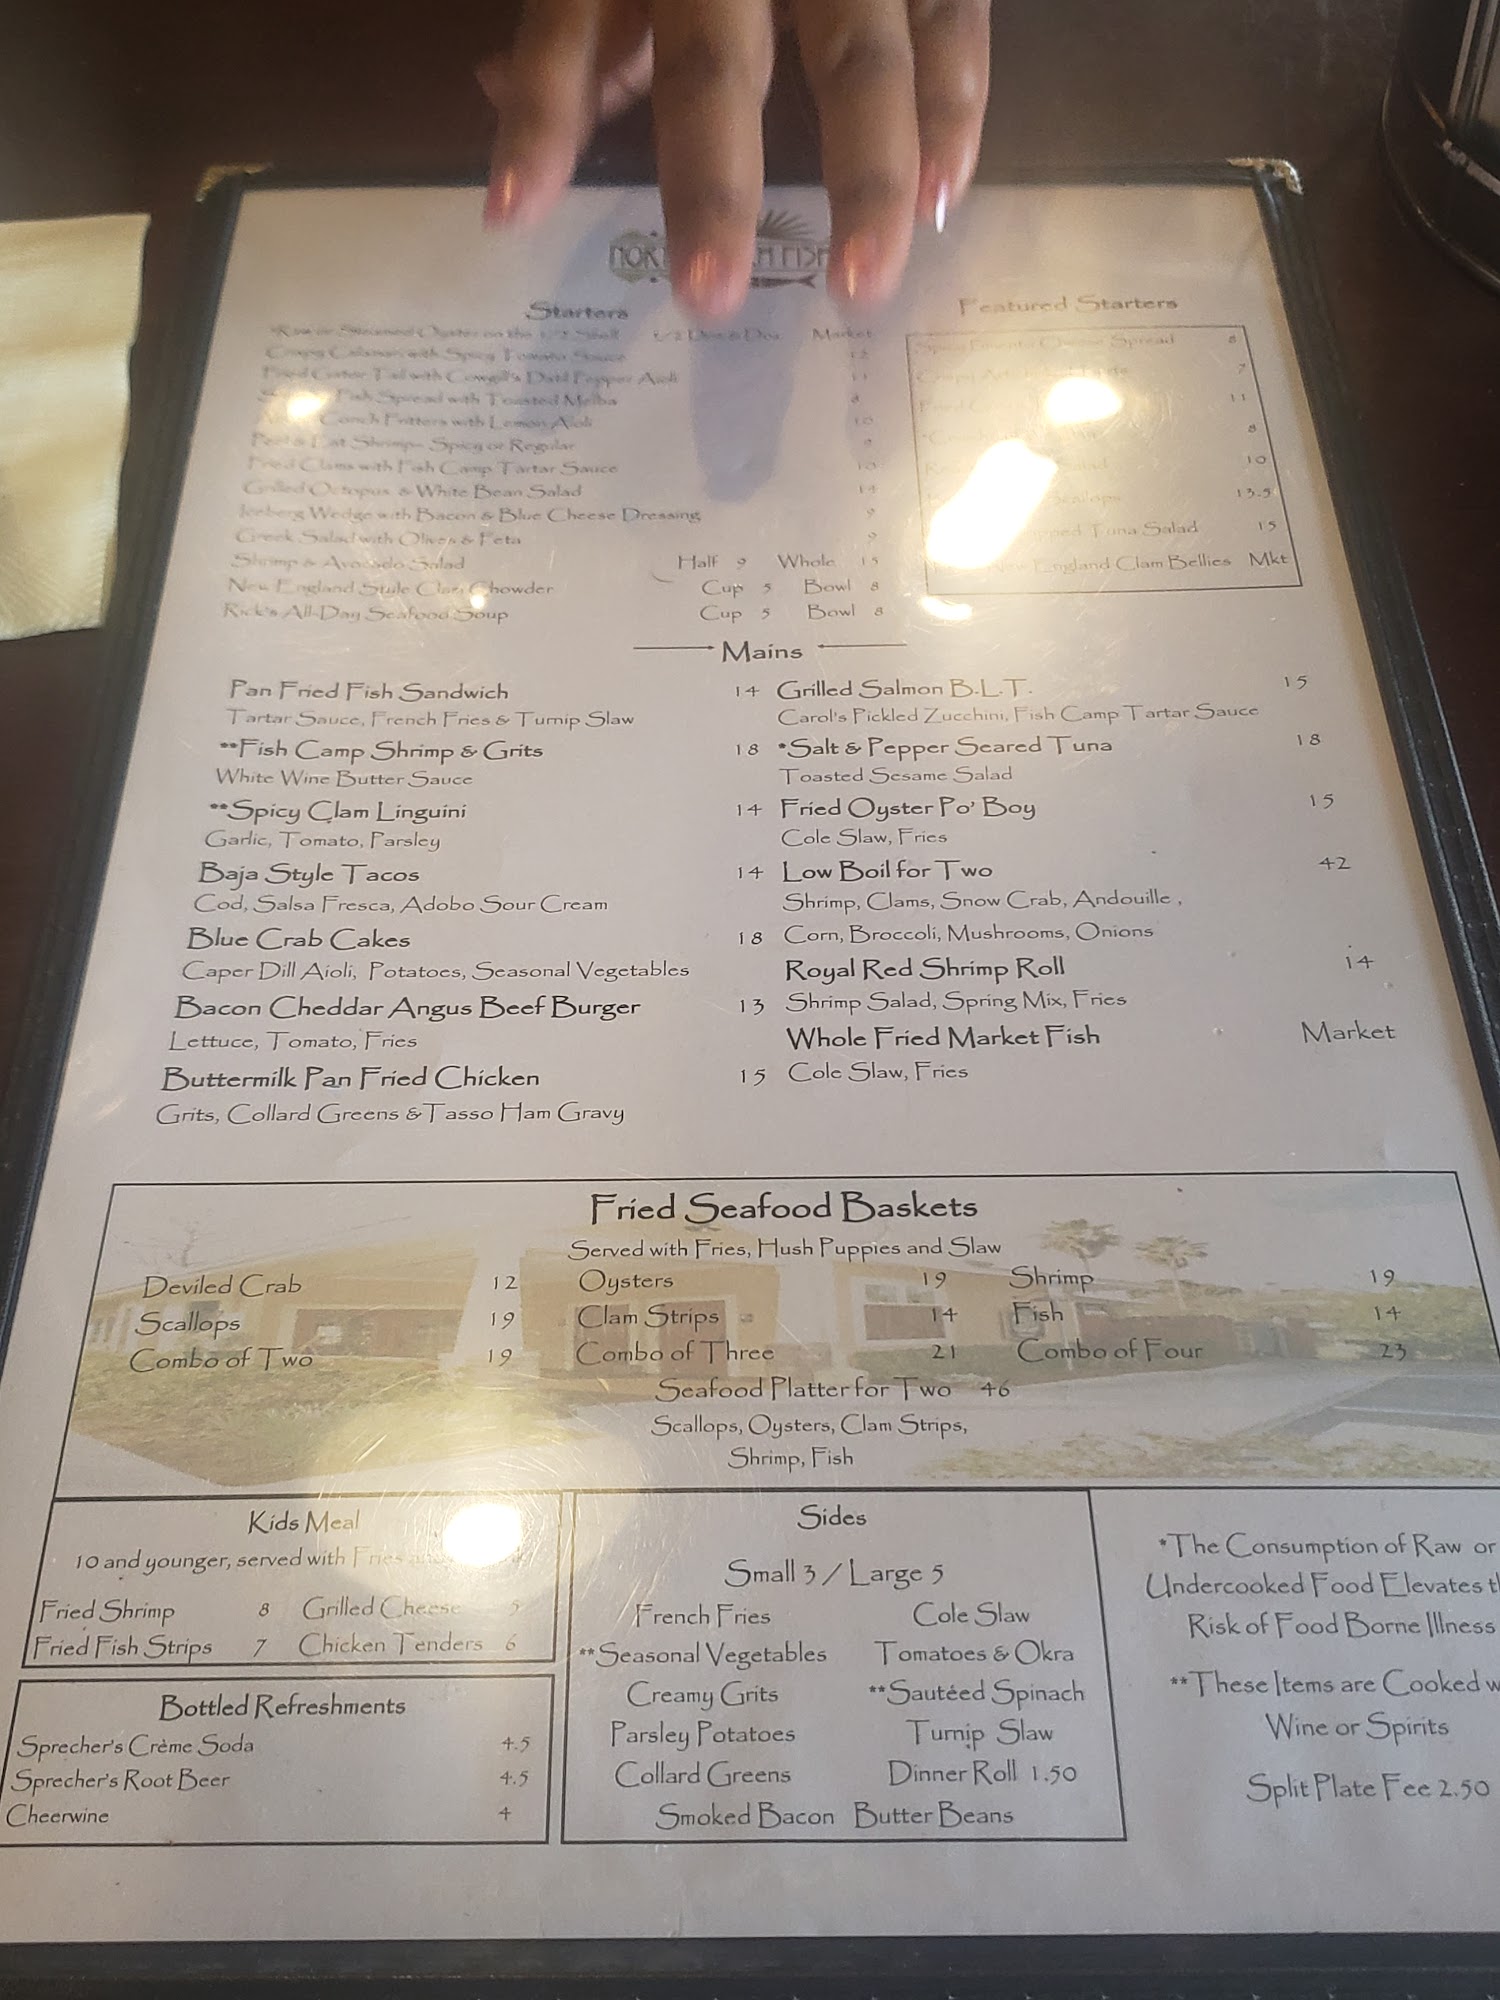 Starters
*Raw or Steamed Oyster on the 1/2 Shell 1/2 Doz & Doz Market
Crispy Calamari with Spicy Tomato Sauce 12
Fried Gator Tail with Cowgill's Datil Pepper Aioli 11
Fish Spread with Toasted Melba 8
Conch Fritters with Lemon Aioli 10
Peel & Eat Shrimp~ Spicy or Regular 9
Fried Clams with Fish Camp Tartar Sauce 10
Grilled Octopus & White Bean Salad 14
Iceberg Wedge with Bacon & Blue Cheese Dressing 9
Greek Salad with Olives & Feta 9
Shrimp & Avocado Salad Half 9 Whole 15
New England Style Clam Chowder Cup 5 Bowl 8
Rick's All-Day Seafood Soup Cup 5 Bowl 8
Featured Starters
Spicy Pimento Cheese Spread 8
Crispy 7
Fried 11
8
Salad 10
Scallops 13.5
Tuna Salad 15
New England Clam Bellies Mkt
Mains
Pan Fried Fish Sandwich 14
Tartar Sauce, French Fries & Turnip Slaw
**Fish Camp Shrimp & Grits 18
White Wine Butter Sauce
**Spicy Clam Linguini 14
Garlic, Tomato, Parsley
Baja Style Tacos 14
Cod, Salsa Fresca, Adobo Sour Cream
Blue Crab Cakes 18
Caper Dill Aioli, Potatoes, Seasonal Vegetables
Bacon Cheddar Angus Beef Burger 13
Lettuce, Tomato, Fries
Buttermilk Pan Fried Chicken 15
Grits, Collard Greens & Tasso Ham Gravy
Grilled Salmon B.L.T. 15
Carol's Pickled Zucchini, Fish Camp Tartar Sauce
*Salt & Pepper Seared Tuna 18
Toasted Sesame Salad
Fried Oyster Po' Boy 15
Cole Slaw, Fries
Low Boil for Two 42
Shrimp, Clams, Snow Crab, Andouille ,
Corn, Broccoli, Mushrooms, Onions
Royal Red Shrimp Roll 14
Shrimp Salad, Spring Mix, Fries
Whole Fried Market Fish Market
Cole Slaw, Fries
Fried Seafood Baskets
Served with Fries, Hush Puppies and Slaw
Deviled Crab 12 Oysters 19 Shrimp 19
Scallops 19 Clam Strips 14 Fish 14
Combo of Two 19 Combo of Three 21 Combo of Four 23
Seafood Platter for Two 46
Scallops, Oysters, Clam Strips,
Shrimp, Fish
Kids Meal
10 and younger, served with Fries
Fried Shrimp 8 Grilled Cheese 5
Fried Fish Strips 7 Chicken Tenders 6
Bottled Refreshments
Sprecher's Crème Soda 4.5
Sprecher's Root Beer 4.5
Cheerwine 4
Sides
Small 3 / Large 5
French Fries Cole Slaw
**Seasonal Vegetables Tomatoes & Okra
Creamy Grits **Sautéed Spinach
Parsley Potatoes Turnip Slaw
Collard Greens Dinner Roll 1.50
Smoked Bacon Butter Beans
*The Consumption of Raw or
Undercooked Food Elevates
Risk of Food Borne Illness
**These Items are Cooked
Wine or Spirits
Split Plate Fee 2.50